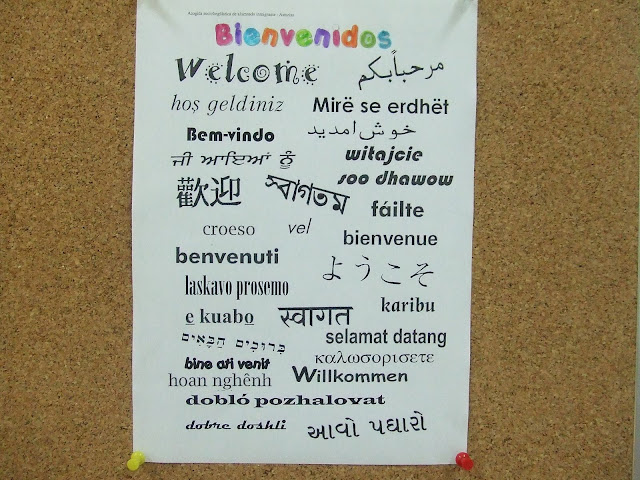 Bienvenidos
Welcome مرحباًبكم
hoş geldiniz Mirë se erdhët
Bem-vindo خوش امدید
ਜੀ ਆਇਆਂ ਨੂੰ witajcie
soo dhawow
歡迎 স্বাগতম fáilte
croeso vel bienvenue
benvenuti ようこそ
laskavo prosemo karibu
ẹ kuabọ स्वागत
בְּרוּכִים הַבָּאִים selamat datang
bine ati venit καλωσορισετε
hoan nghênh Willkommen
dobló pozhalovat
dobre doshli આવો પધારો